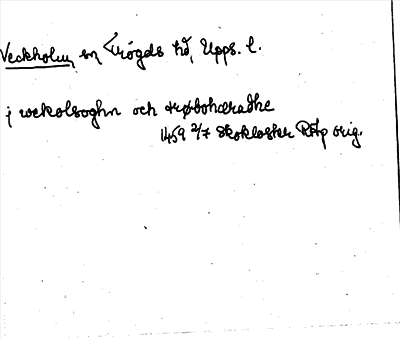 Veckholm sn Trögds hd, Upps. l.
j wekolsoghn och trøbohæradhe
1459 2/7 Skokloster RAp orig.